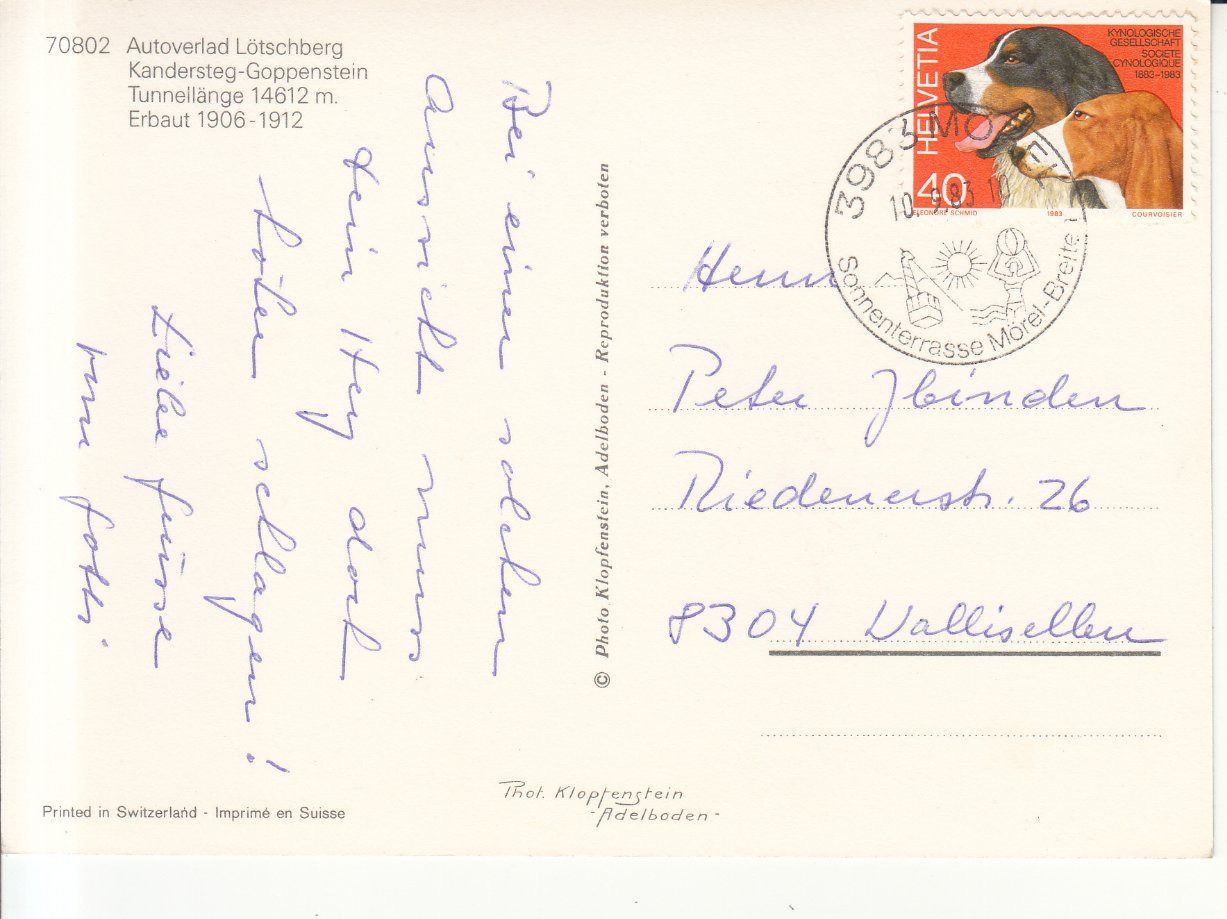 70802 Autoverlad Lötschberg
Kandersteg-Goppenstein
Tunnellänge 14612 m.
Erbaut 1906-1912
Bei einer solchen
Aussicht muss
Dein Herz doch
höher schlagen!
Liebe Grüsse
vom Gotti
Printed in Switzerland - Imprimé en Suisse
© Photo Klopfenstein, Adelboden - Reproduktion verboten
Phot. Klopfenstein
-Adelboden-
HELVETIA
KYNOLOGISCHE
GESELLSCHAFT
SOCIETE
CYNOLOGIQUE
1883-1983
40
ELEONORE SCHMID 1983 COURVOISIER
3983 MÖREL
10. 83 10
Sonnenterrasse Mörel-Breiten
Herrn
Peter Ibinden
Riedenerstr. 26
8304 Wallisellen